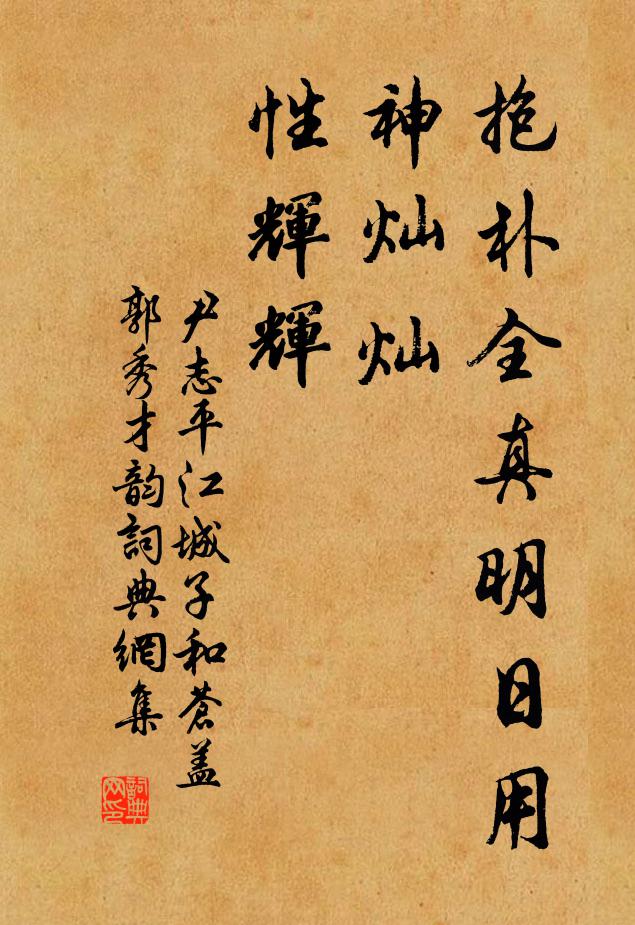 抱朴全真明日用
神灿灿
性輝輝
尹志平江城子和蒼盖
郭秀才韵詞典網集
詞典网印